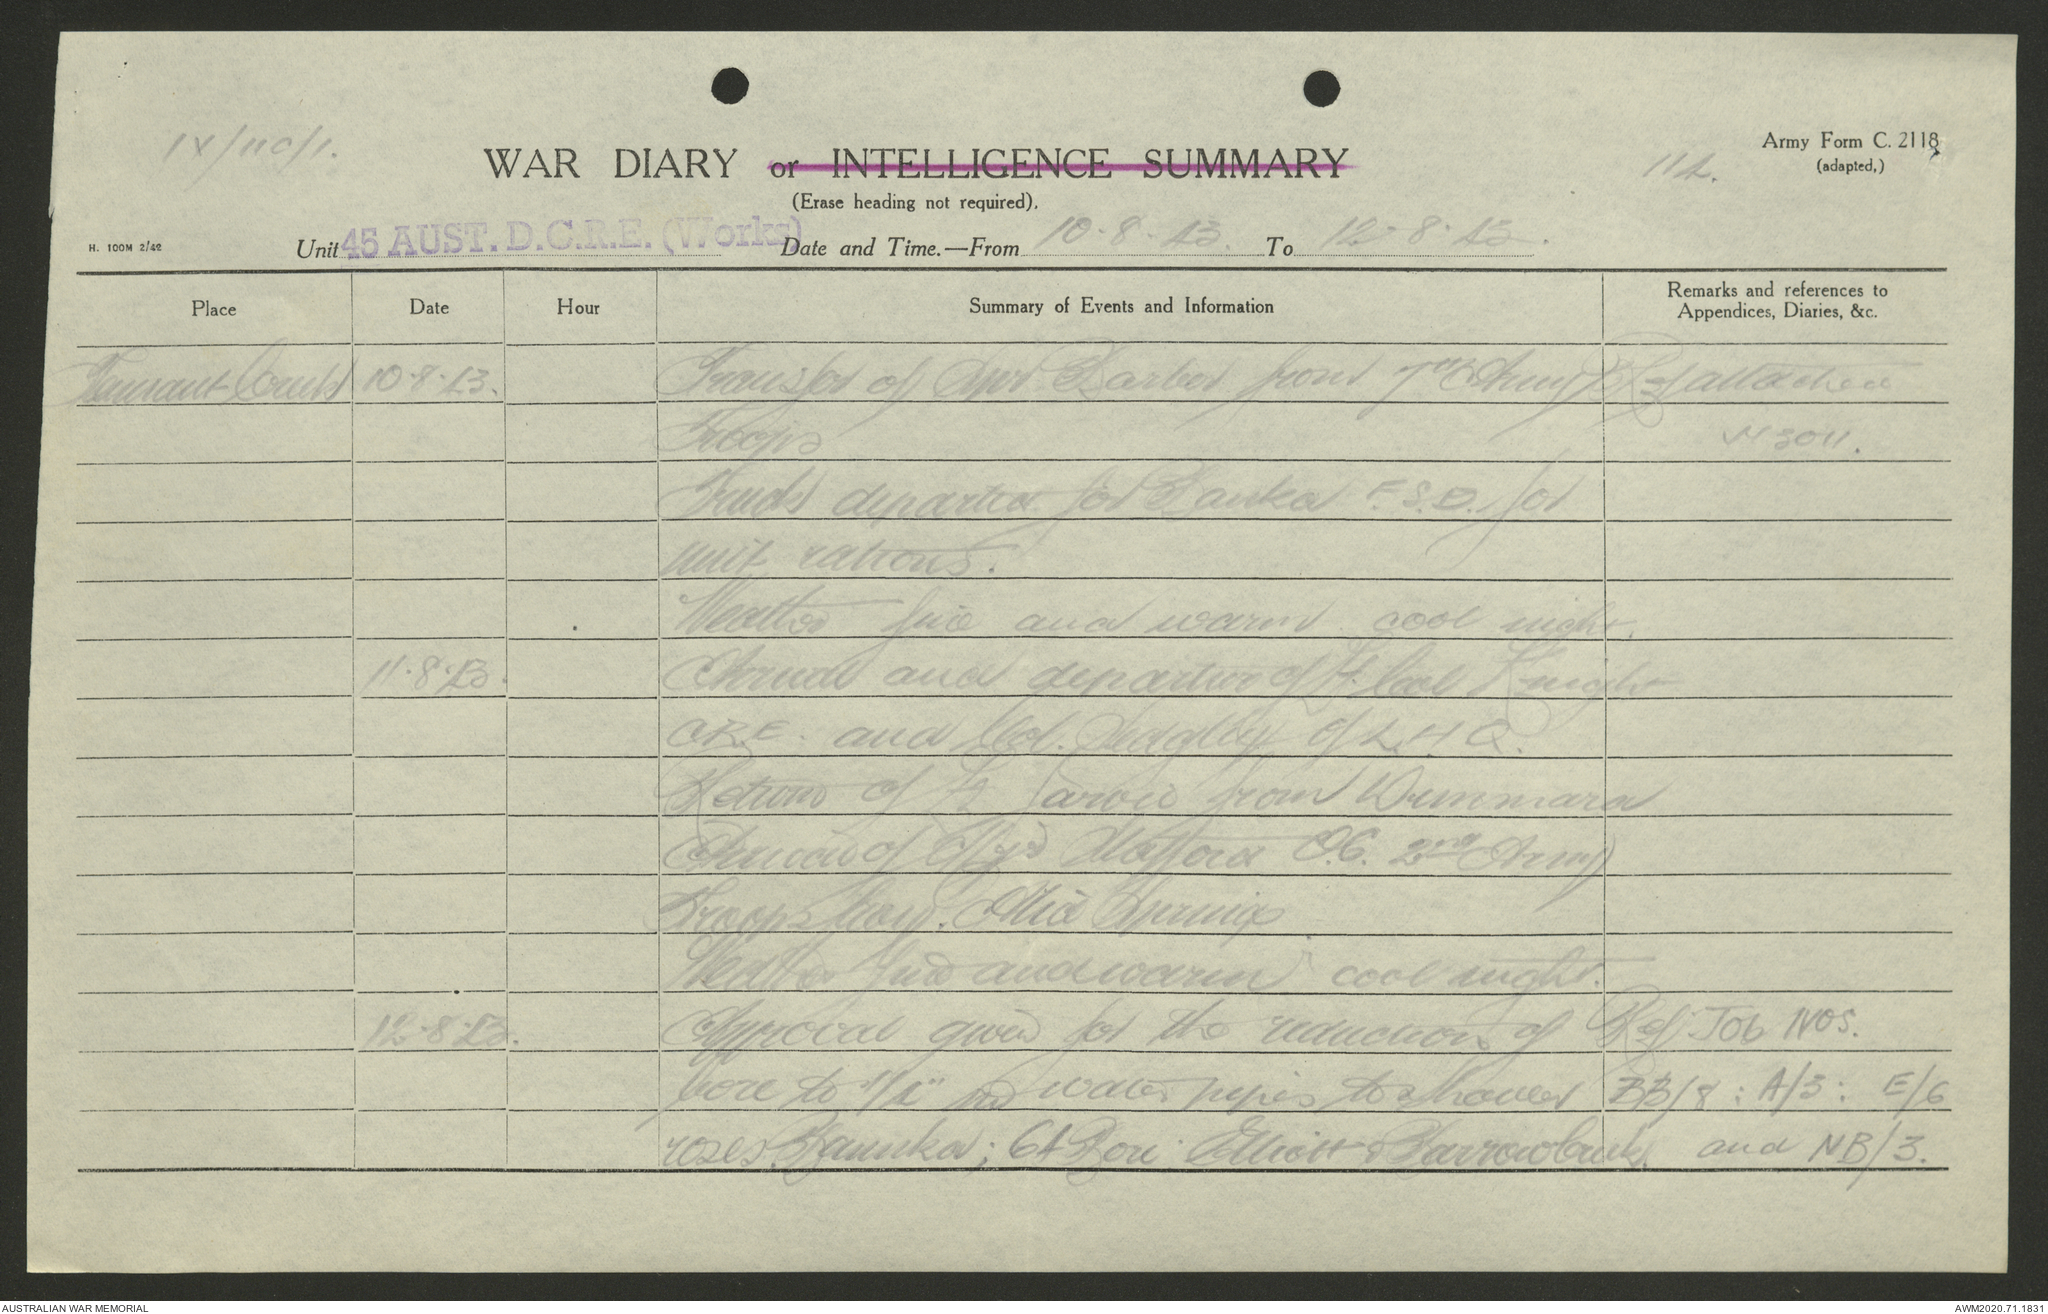 IX/110/1.
WAR DIARY or INTELLIGENCE SUMMARY
(Erase heading not required).
Army Form C. 2118
(adapted,)
112.
H. 100M 2/42
Unit 45 AUST. D.C.R.E. (Works) Date and Time.—From 10.8.43. To 12.8.43.
Place Date Hour Summary of Events and Information Remarks and references to
Appendices, Diaries, &c.
Tennant Creek 10.8.43. Transfer of Spr Barber from 7th Army Ref attached
Troops
Truck departed for Banka F.S.D. for
unit rations.
Weather fine and warm cool night.
11.8.43. Arrival and departure of Lt Col Knight
C.R.E. and Col. of L.H.Q.
Return of Lt Jarvie from Dunmara
Arrival of O.C. 2nd Army
Troops Coy. Alice Springs
Weather fine and warm cool night.
12.8.43. Approval given for the reduction of Ref Job Nos.
bore to water pipes to shower BB/8 : A/3 : E/6
roses Banka; 64 Bore Elliott & Barrow Creek. and NB/3.
AUSTRALIAN WAR MEMORIAL
AWM2020.71.1831